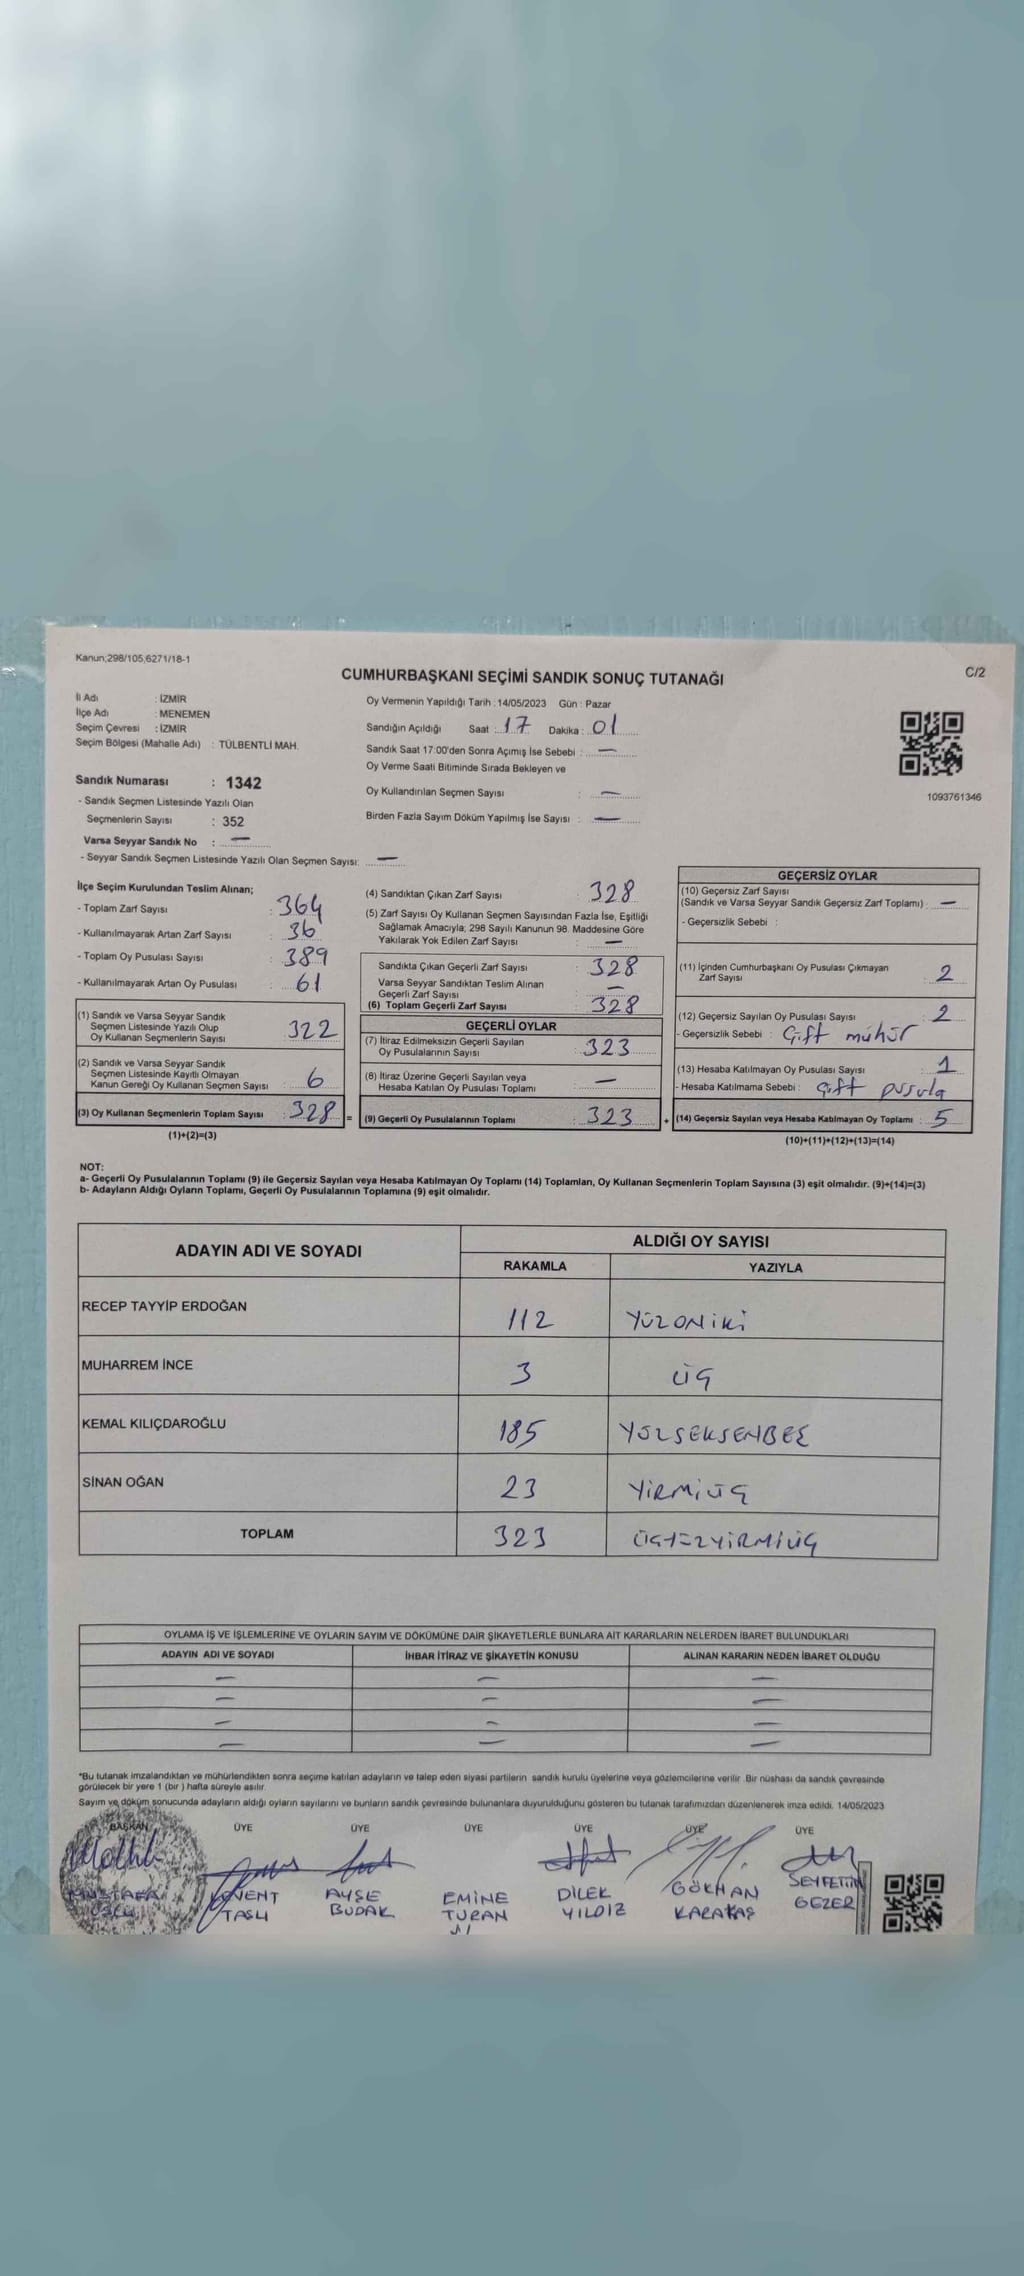 Kanun;298/105,6271/18-1
C/2
CUMHURBAŞKANI SEÇİMİ SANDIK SONUÇ TUTANAĞI
İl Adı : İZMİR
İlçe Adı : MENEMEN
Seçim Çevresi : İZMİR
Seçim Bölgesi (Mahalle Adı) : TÜLBENTLİ MAH.
Sandık Numarası : 1342
- Sandık Seçmen Listesinde Yazılı Olan
Seçmenlerin Sayısı : 352
Varsa Seyyar Sandık No : —
- Seyyar Sandık Seçmen Listesinde Yazılı Olan Seçmen Sayısı: —
Oy Vermenin Yapıldığı Tarih : 14/05/2023 Gün : Pazar
Sandığın Açıldığı Saat : 17 Dakika : 01
Sandık Saat 17:00'den Sonra Açımış İse Sebebi : —
Oy Verme Saati Bitiminde Sırada Bekleyen ve
Oy Kullandırılan Seçmen Sayısı : —
Birden Fazla Sayım Döküm Yapılmış İse Sayısı : —
1093761346
İlçe Seçim Kurulundan Teslim Alınan;
- Toplam Zarf Sayısı : 364
- Kullanılmayarak Artan Zarf Sayısı : 36
- Toplam Oy Pusulası Sayısı : 389
- Kullanılmayarak Artan Oy Pusulası : 61
(1) Sandık ve Varsa Seyyar Sandık
Seçmen Listesinde Yazılı Olup
Oy Kullanan Seçmenlerin Sayısı : 322
(2) Sandık ve Varsa Seyyar Sandık
Seçmen Listesinde Kayıtlı Olmayan
Kanun Gereği Oy Kullanan Seçmen Sayısı : 6
(3) Oy Kullanan Seçmenlerin Toplam Sayısı : 328 =
(1)+(2)=(3)
(4) Sandıktan Çıkan Zarf Sayısı : 328
(5) Zarf Sayısı Oy Kullanan Seçmen Sayısından Fazla İse, Eşitliği
Sağlamak Amacıyla; 298 Sayılı Kanunun 98. Maddesine Göre
Yakılarak Yok Edilen Zarf Sayısı : —
Sandıkta Çıkan Geçerli Zarf Sayısı : 328
Varsa Seyyar Sandıktan Teslim Alınan
Geçerli Zarf Sayısı : —
(6) Toplam Geçerli Zarf Sayısı : 328
GEÇERLİ OYLAR
(7) İtiraz Edilmeksizin Geçerli Sayılan
Oy Pusulalarının Sayısı : 323
(8) İtiraz Üzerine Geçerli Sayılan veya
Hesaba Katılan Oy Pusulaları Toplamı : —
(9) Geçerli Oy Pusulalarının Toplamı : 323 +
GEÇERSİZ OYLAR
(10) Geçersiz Zarf Sayısı
(Sandık ve Varsa Seyyar Sandık Geçersiz Zarf Toplamı) : —
- Geçersizlik Sebebi :
(11) İçinden Cumhurbaşkanı Oy Pusulası Çıkmayan
Zarf Sayısı : 2
(12) Geçersiz Sayılan Oy Pusulası Sayısı : 2
- Geçersizlik Sebebi : Çift mühür
(13) Hesaba Katılmayan Oy Pusulası Sayısı : 1
- Hesaba Katılmama Sebebi : Çift pusula
(14) Geçersiz Sayılan veya Hesaba Katılmayan Oy Toplamı : 5
(10)+(11)+(12)+(13)=(14)
NOT:
a- Geçerli Oy Pusulalarının Toplamı (9) ile Geçersiz Sayılan veya Hesaba Katılmayan Oy Toplamı (14) Toplamları, Oy Kullanan Seçmenlerin Toplam Sayısına (3) eşit olmalıdır. (9)+(14)=(3)
b- Adayların Aldığı Oyların Toplamı, Geçerli Oy Pusulalarının Toplamına (9) eşit olmalıdır.
ADAYIN ADI VE SOYADI ALDIĞI OY SAYISI
RAKAMLA YAZIYLA
RECEP TAYYİP ERDOĞAN 112 YÜZONİKİ
MUHARREM İNCE 3 ÜÇ
KEMAL KILIÇDAROĞLU 185 YÜZSEKSENBEŞ
SİNAN OĞAN 23 YİRMİÜÇ
TOPLAM 323 ÜÇYÜZYİRMİÜÇ
OYLAMA İŞ VE İŞLEMLERİNE VE OYLARIN SAYIM VE DÖKÜMÜNE DAİR ŞİKAYETLERLE BUNLARA AİT KARARLARIN NELERDEN İBARET BULUNDUKLARI
ADAYIN ADI VE SOYADI İHBAR İTİRAZ VE ŞİKAYETİN KONUSU ALINAN KARARIN NEDEN İBARET OLDUĞU
— — —
— — —
— — —
— — —
*Bu tutanak imzalandıktan ve mühürlendikten sonra seçime katılan adayların ve talep eden siyasi partilerin sandık kurulu üyelerine veya gözlemcilerine verilir. Bir nüshası da sandık çevresinde
görülecek bir yere 1 (bir ) hafta süreyle asılır.
Sayım ve döküm sonucunda adayların aldığı oyların sayılarını ve bunların sandık çevresinde bulunanlara duyurulduğunu gösteren bu tutanak tarafımızdan düzenlenerek imza edildi. 14/05/2023
BAŞKAN ÜYE ÜYE ÜYE ÜYE ÜYE ÜYE
MUSTAFA LEVENT AYŞE EMİNE DİLEK GÖKHAN SEYFETTİN
TAŞLI BUDAK TURAN YILDIZ KARAKAŞ GEZER